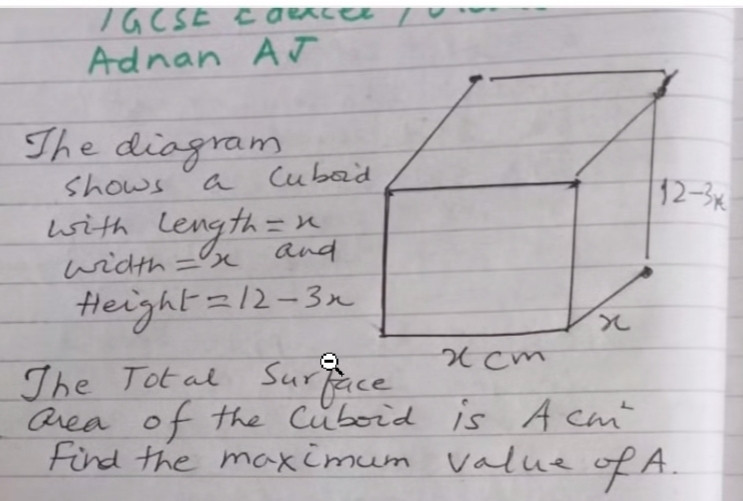 IGCSE Edexcel /
Adnan AJ
The diagram
shows a Cuboid
with Length = x
width = x and
Height = 12 - 3x
12 - 3x
x
x cm
The Total Surface
area of the Cuboid is A cm²
Find the maximum value of A.